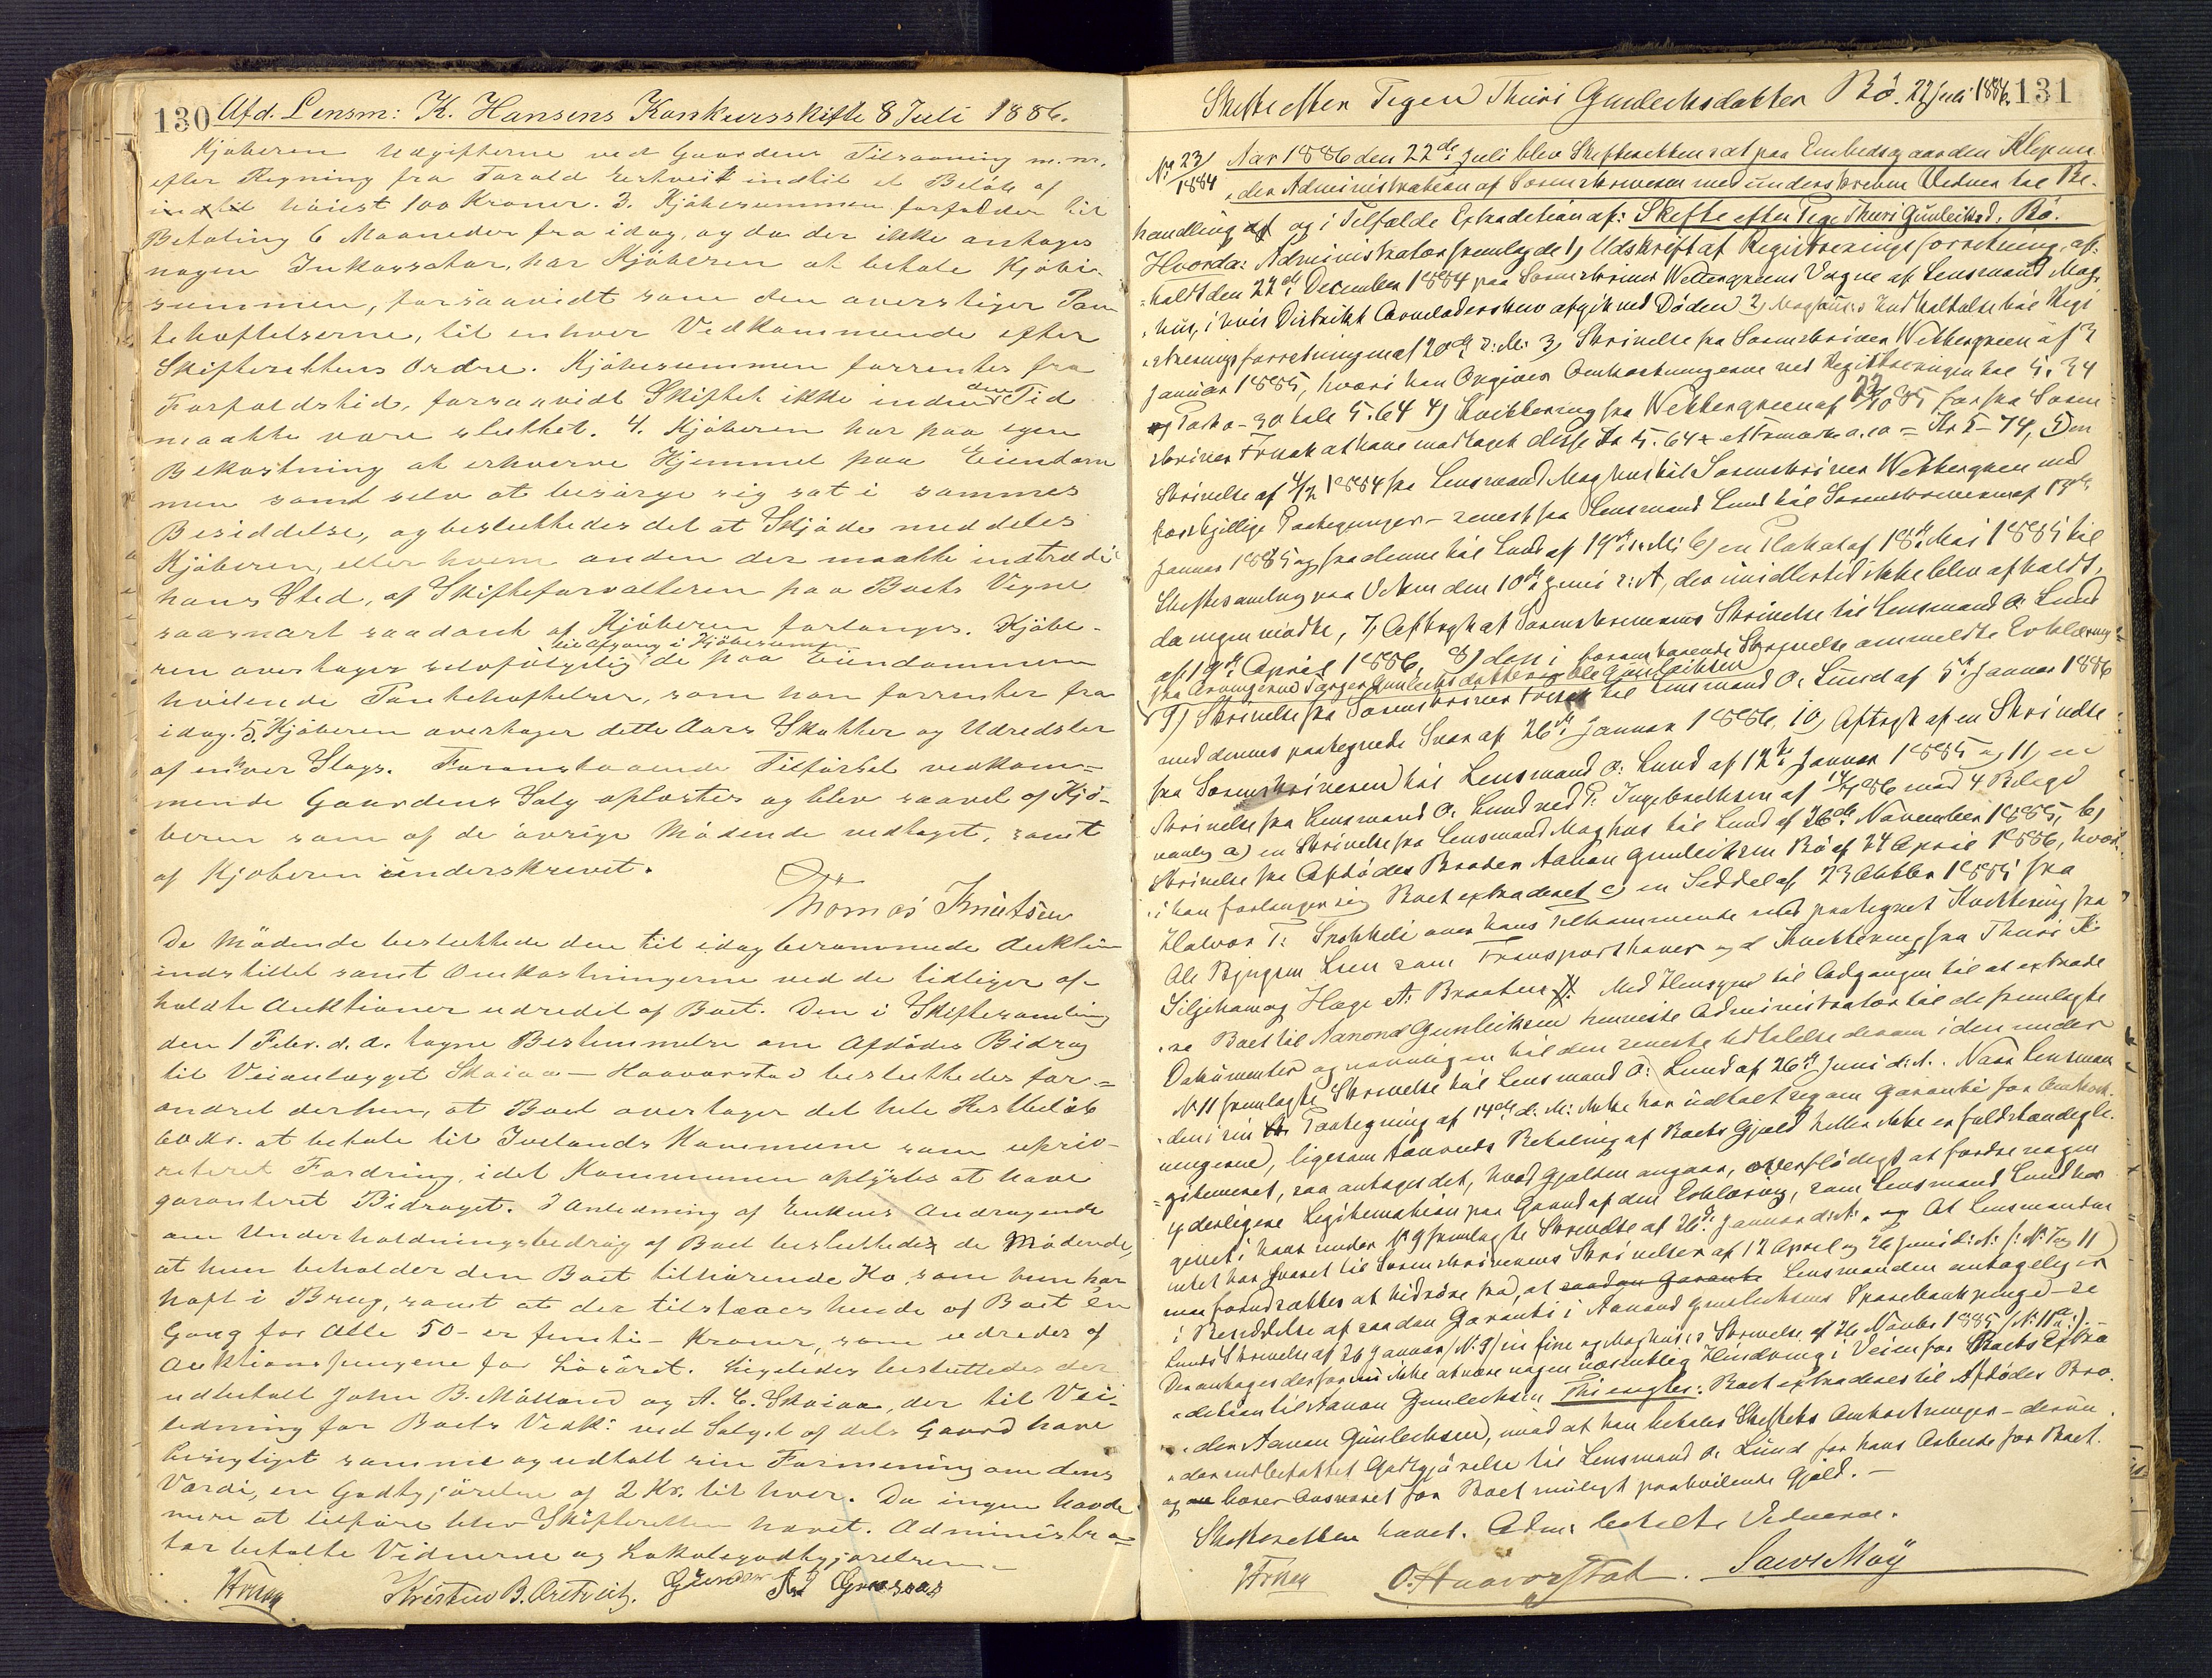 130 Afd. Lensm: K. Hansens Konkursskifte 8 Juli 1886.
Kjøberen Udgifterne ved Gaardens Tilsavning m. m.
efter Regning fra Torald Erkveit indtil et Beløb af
indtil høiest 100 Kroner. 3. Kjøbesummen forfalder til
Betaling 6 Maaneder fra idag, og da der ikke antages
nogen Inkassator, har Kjøberen at betale Kjøbe-
summen, forsaavidt som den overstiger Pan
tehæftelserne, til enhver Vedkommende efter
Skifterettens Ordre. Kjøbesummen forrentes fra
Forfaldstid, forsaavidt Skiftet ikke inden den Tid
maatte være sluttet. 4. Kjøberen har paa egen
Bekostning at erhverve Hjemmel paa Eiendom
men samt selv at besørge sig sat i sammes
Besiddelse, og besluttedes det at Skjøde meddeles
Kjøberen, eller hvem anden der maatte indtræde i
hans Sted, af Skifteforvalteren paa Boets Vegne
saasnart saadant af Kjøberen forlanges. Kjøbe-
til Afgang i Kjøbesummen
ren overtager selvfølgelig de paa Eiendommen
hvilende Pantehæftelser, som han forrenter fra
idag. 5. Kjøberen overtager dette Aars Skatter og Udredsler
af enhver Slags. Foranstaaende Tilførsel vedkom=
mende Gaardens Salg oplæstes og blev saavel af Kjø-
beren som af de øvrige Mødende vedtaget, samt
af Kjøberen underskrevet.
Thomas Knutsen
De Mødende besluttede den til idag berammede Auktion
indstillet samt Omkostningerne ved de tidligere af-
holdte Auktioner udredet af Boet. Den i Skiftesamling
den 1 Febr. d. A. tagne Bestemmelse om Afdødes Bidrag
til Veianlægget Skaiaa - Haavorstad besluttedes for=
andret derhen, at Boet overtager det hele Restbeløb
60 Kr. at betale til Ivelands Kommune som uprio-
riteret Fordring, idet Kommunen oplystes at have
garanteret Bidraget. I Anledning af Enkens Andragende
om Underholdningsbidrag af Boet besluttedes de Mødende,
at hun beholder den Boet tilhørende Ko, som hun har
havt i Brug, samt at der tilstaaes hende af Boet en
Gang for Alle 50 - er femti - Kroner, som udredes af
Auktionspengene for Løsøret. Ligeledes besluttedes der
udbetalt John B. Mølland og A. C. Skaiaa, der til Vei-
ledning for Boets Vedk: ved Salget af dets Gaard have
besigtiget samme og udtalt sin Formening om dens
Værdi, en Godtgjørelse af 2 Kr. til hver. Da ingen havde
mere at tilføre blev Skifteretten hævet. Administra=
tor betalte Vidnerne og Lokalegodtgjørelsen.
Kristen B.
Skifte efter Pigen Thuri Gunleiksdatter Bø. 22 Juli 1886. 131
No 23/1884
Aar 1886 den 22de Juli blev Skifteretten sat paa Embedsgaarden Klepene
under Administration af Sorenskriveren med underskrevne Vidner til Be-
handling af og i Tilfælde Extradition af: Skifte efter Pige Thuri Gunleiksd. Bø.
Hvorda: Administrator fremlagde 1) Udskrift af Registreringsforretning, af-
holdt den 22de December 1884 paa Sorenskriver Wettergreens Vegne af Lensmand Mag-
hus, i hvis Distrikt Arveladersken afgik ved Døden 2)
streringsforretningen af 20de s: M: 3) Skrivelse fra Sorenskriver Wettergreen af 2
Januar 1885, hvori han Opgiver Omkostningerne ved Registreringen til 5.34
og Porto - 30 tils 5.64 4) Kvittering fra Wettergreen af
at have modtaget disse Kr 5.64
Skrivelse af 4/12 1884 fra Lensmand Maghus til Sorenskriver Wettergreen med
forskjellige Paategninger - senest fra Lensmand Lund til Sorenskriveren af 17de
Januar 1885 og fra denne til Lund af 19de s. M: 6) en Plakat af 18de Mai 1885 til
Skiftesamling paa den 10de Juni s: A, der imidlertid ikke blev afholdt,
da ingen mødte, 7) Aftryk af Sorenskriverens Skrivelse til Lensmand O. Lund
af 19de April 1886, 8) den i foranstaaende Skrivelse ommeldte Erklæring
fra Arvingerne Torger Gunleiksdatter og Ole Gunleiksen
9) Skrivelse fra Sorenskriver til Lensmand O. Lund af 5te Januar 1886
med dennes paategnede Svar af 26de Januar 1886, 10) Aftryk af en Skrivelse
fra Sorenskriveren til Lensmand O: Lund af 12te Januar 1885 og 11) en
Skrivelse fra Lensmand O. Lund ved P. Ingebrethsen af med 4 Bilage
nemlig a) en Skrivelse fra Lensmand Maghus til Lund af 26de November 1885, b)
Skrivelse fra Afdødes Broder Aanon Gunleiksen Bø af 24 April 1886, hvor
i han forlanger sig Boet extraderet c) en Seddel af 23 Oktbr 1885 fra
Halvor T: over hans Tilkommende med paategnet Kvittering fra
Ole som Transporthaver og d Kvittering fra Thuri K.
og Hage A: Braaten. Med Hensyn til Adgangen til at extrade
re Boet til Aanond Gunleiksen henviste Administrator til de fremlagte
Dokumenter og navnligen til den seneste Udtalelse derom i den under
No 11 fremlagte Skrivelse til Lensmand O: Lund af 26de Juni d: A. Naar Lensman
den i sin Paategning af 14de d: M: ikke har udtalt sig om Garanti for Omkost-
ningerne, ligesom Aanonds Betaling af Boets Gjæld heller ikke er fuldstændig le-
gitimeret, saa antages det, hvad Gjælden angaar, overflødigt at fordre nogen
yderligere Legitimation paa Grund af den Erklæring, som Lensmand Lund har
givet i hans under No 9 fremlagte Skrivelse af 26de Januar d: A., og At Lensmanden
intet har svaret til Sorenskriverens Skrivelser af 12 April og 26 Juni d: A: /: No 7 og 11)
maa forudsættes at hidrøre fra, at saadan Garanti Lensmanden antagelig er
i Besiddelse af saadan Garanti i Aanond Gunleiksens Sparebankpenge - se
Lunds Skrivelse af 26 Januar (No 9) in fine og Maghus's Skrivelse af 26 Novbr 1885 (No 11a:). -
Der antages derfor nu ikke at være nogen væsentlig Hindring i Veien for Boets Extra
dition til Aanon Gunleiksen Thi eragtes: Boet extraderes til Afdødes Bro-
der Aanon Gunleiksen, imod at han betaler Skiftets Omkostninger - derun
der indbefattet Godtgjørelse til Lensmand O. Lund for hans Arbeide for Boet.
og bærer Ansvaret for Boet muligt paahvilende Gjæld. -
Skifteretten hævet. Adm: betalte Vidnerne.
O. Haavorstad. Lars Moÿ